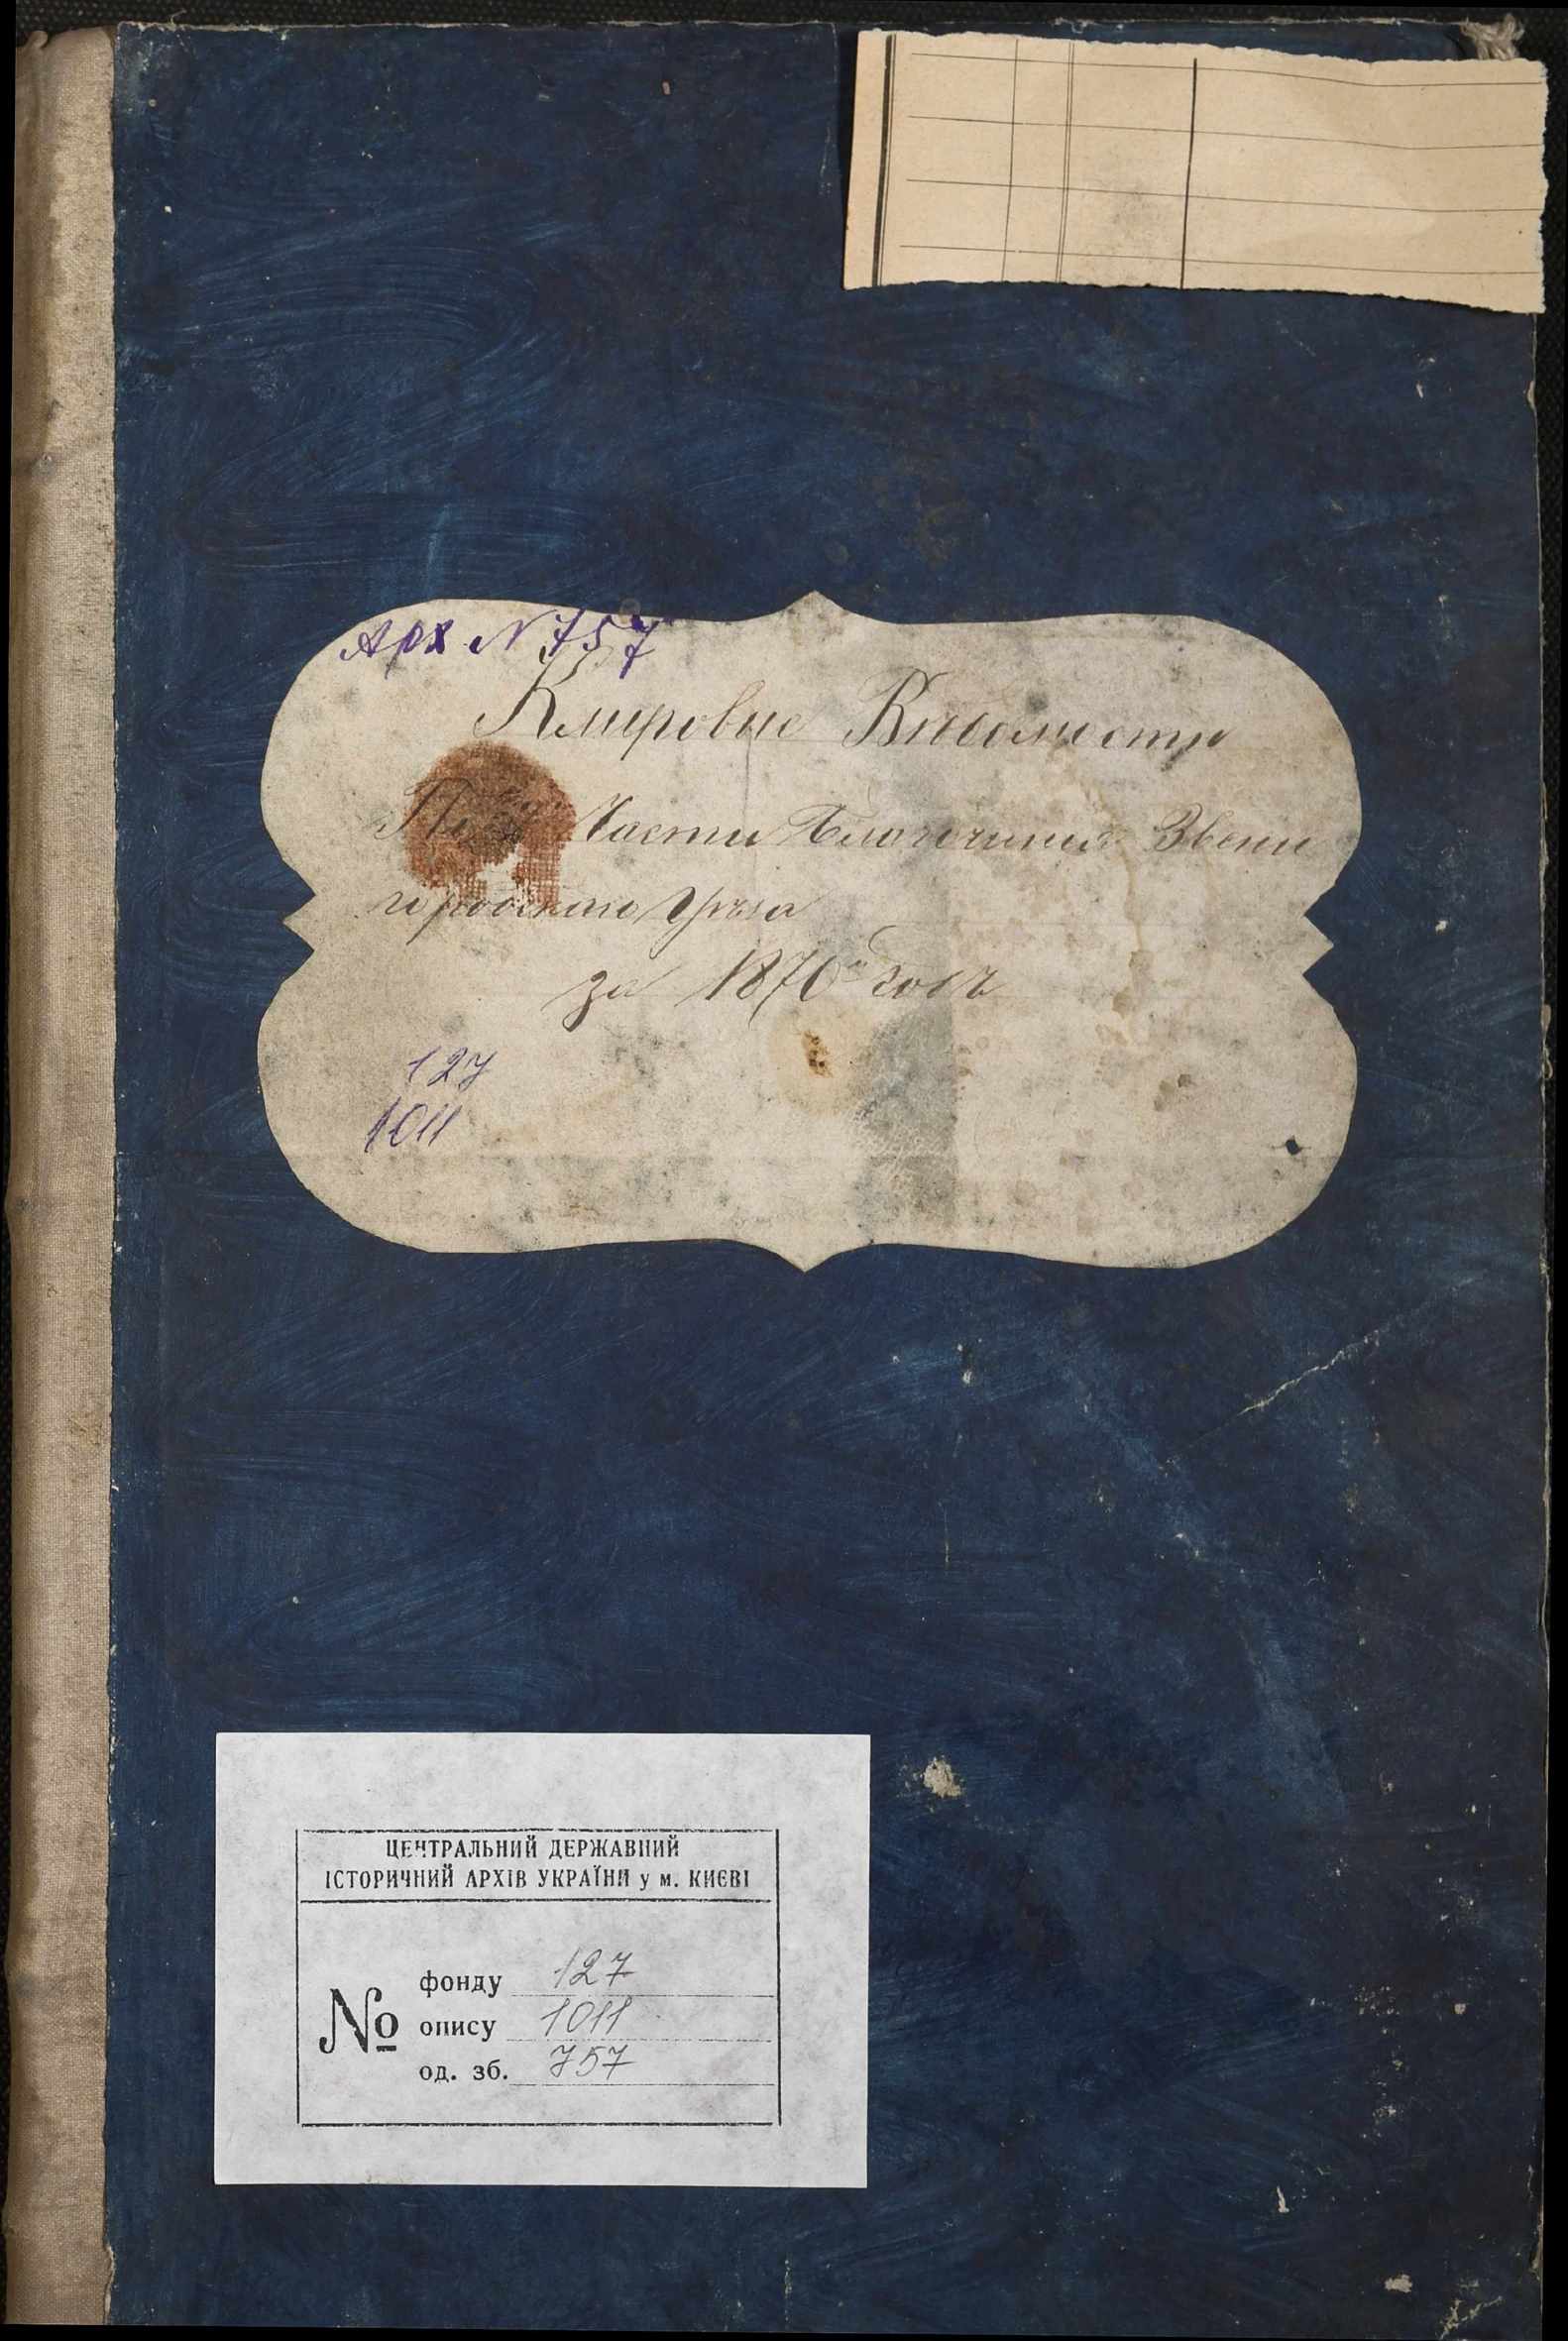 Арх N 757
Клировые Ведомости
Части Благочиния Звени
городского Уезда
за 1870й годъ
127
1011
ЦЕНТРАЛЬНИЙ ДЕРЖАВНИЙ
ІСТОРИЧНИЙ АРХІВ УКРАЇНИ у м. КИЄВІ
№
фонду 127
опису 1011
од. зб. 757